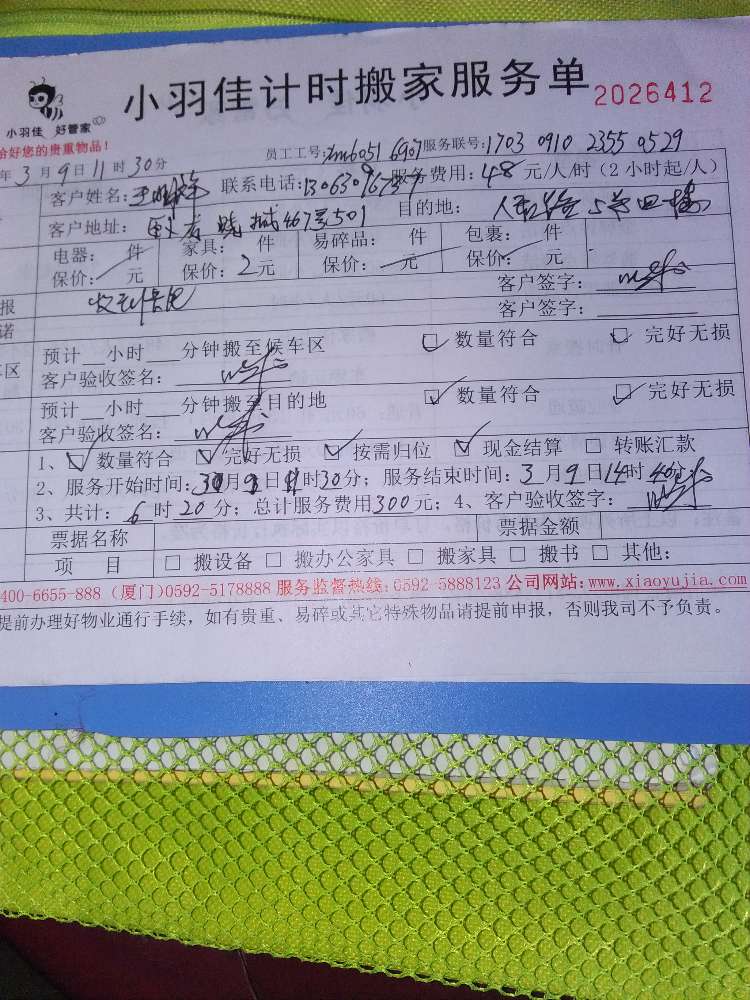 小羽佳计时搬家服务单 2026412
小羽佳 好管家
恰好您的贵重物品！
员工工号: 6051 6907 服务联号:1703 0910 2355 0529
年 3 月 9 日 11 时 30 分
客户姓名: 联系电话: 服务费用: 48 元/人/时（2 小时起/人）
客户地址: 467号501 目的地:
电器: 件 家具: 件 易碎品: 件 包裹: 件
保价: 元 保价: 2 元 保价: 元 保价: 元
客户签字:
报
客户签字:
诺
预计 小时 分钟搬至候车区 数量符合 完好无损
区
客户验收签名:
预计 小时 分钟搬至目的地 数量符合 完好无损
客户验收签名:
1、 数量符合 完好无损 按需归位 现金结算 转账汇款
2、服务开始时间: 月 9 日 11 时 30 分; 服务结束时间: 3 月 9 日 14 时 40 分
3、共计: 6 时 20 分; 总计服务费用 300 元; 4、客户验收签字:
票据名称 票据金额
项 目 搬设备 搬办公家具 搬家具 搬书 其他:
400-6655-888 (厦门)0592-5178888 服务监督热线:0592-5888123 公司网站: www.xiaoyujia.com
提前办理好物业通行手续，如有贵重、易碎或其它特殊物品请提前申报，否则我司不予负责。